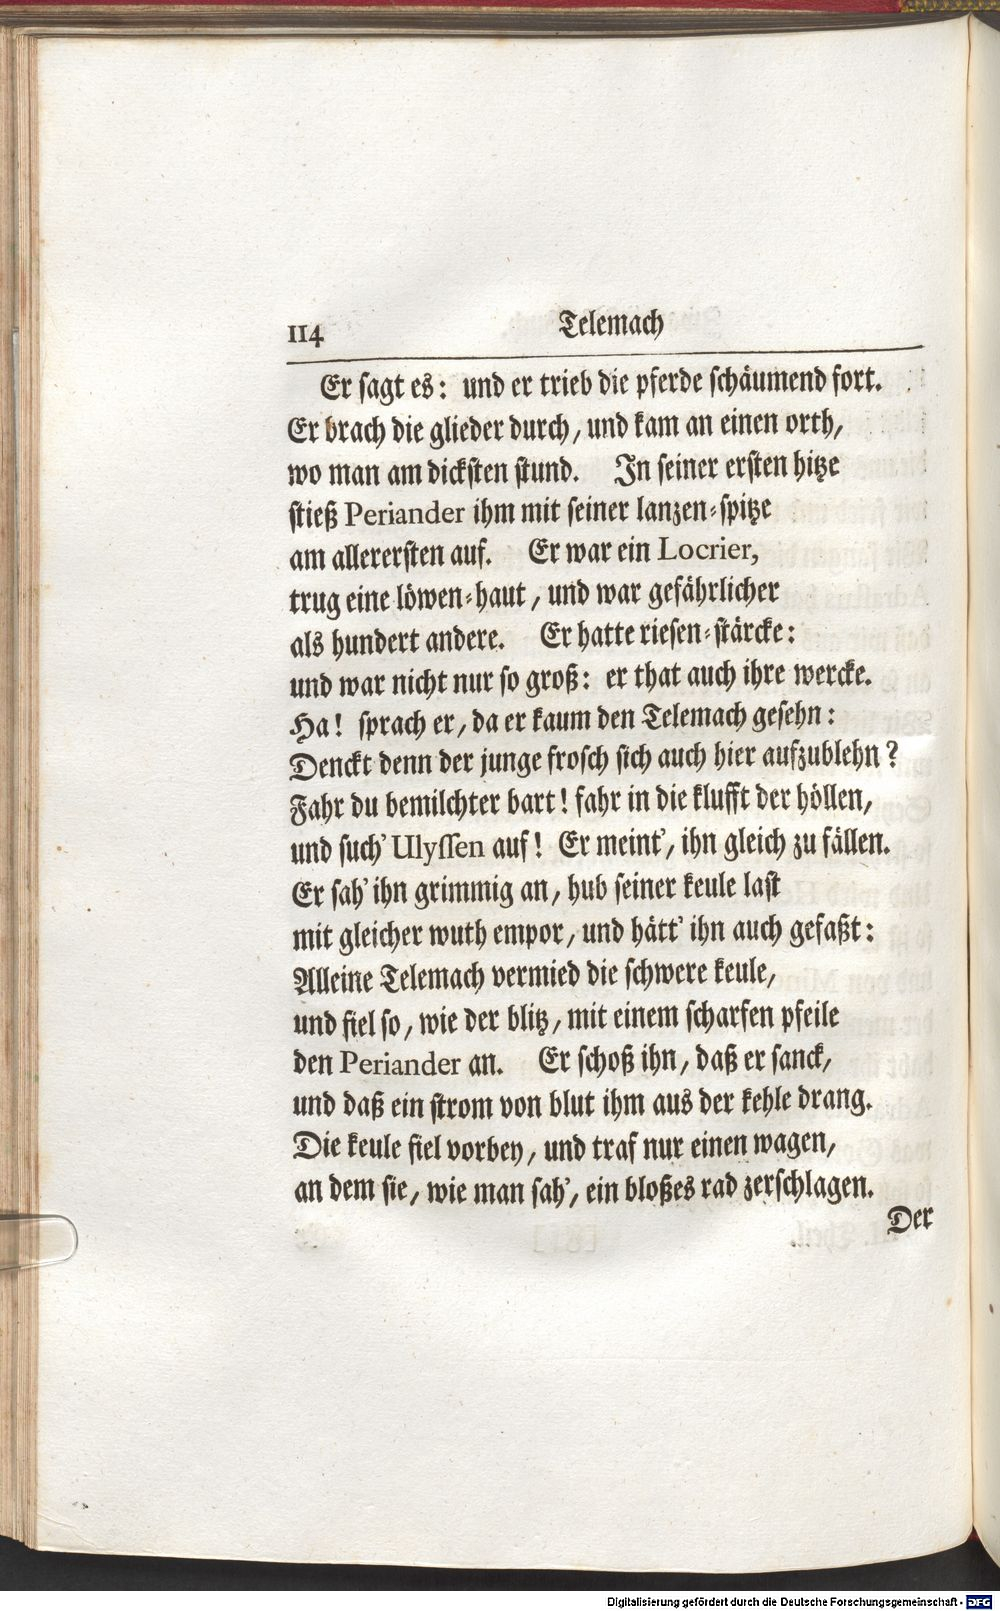 114 Telemach
Er sagt es: und er trieb die pferde schäumend fort.
Er brach die glieder durch, und kam an einen orth,
wo man am dicksten stund. In seiner ersten hitze
stieß Periander ihm mit seiner lanzen-spitze
am allerersten auf. Er war ein Locrier,
trug eine löwen-haut, und war gefährlicher
als hundert andere. Er hatte riesen-stärcke:
und war nicht nur so groß: er that auch ihre wercke.
Ha! sprach er, da er kaum den Telemach gesehn:
Denckt denn der junge frosch sich auch hier aufzublehn?
Fahr du bemilchter bart! fahr in die klufft der höllen,
und such' Ulyssen auf! Er meint', ihn gleich zu fällen.
Er sah' ihn grimmig an, hub seiner keule last
mit gleicher wuth empor, und hätt' ihn auch gefaßt:
Alleine Telemach vermied die schwere keule,
und fiel so, wie der blitz, mit einem scharfen pfeile
den Periander an. Er schoß ihn, daß er sanck,
und daß ein strom von blut ihm aus der kehle drang.
Die keule fiel vorbey, und traf nur einen wagen,
an dem sie, wie man sah', ein bloßes rad zerschlagen.
Der
Digitalisierung gefördert durch die Deutsche Forschungsgemeinschaft - DFG